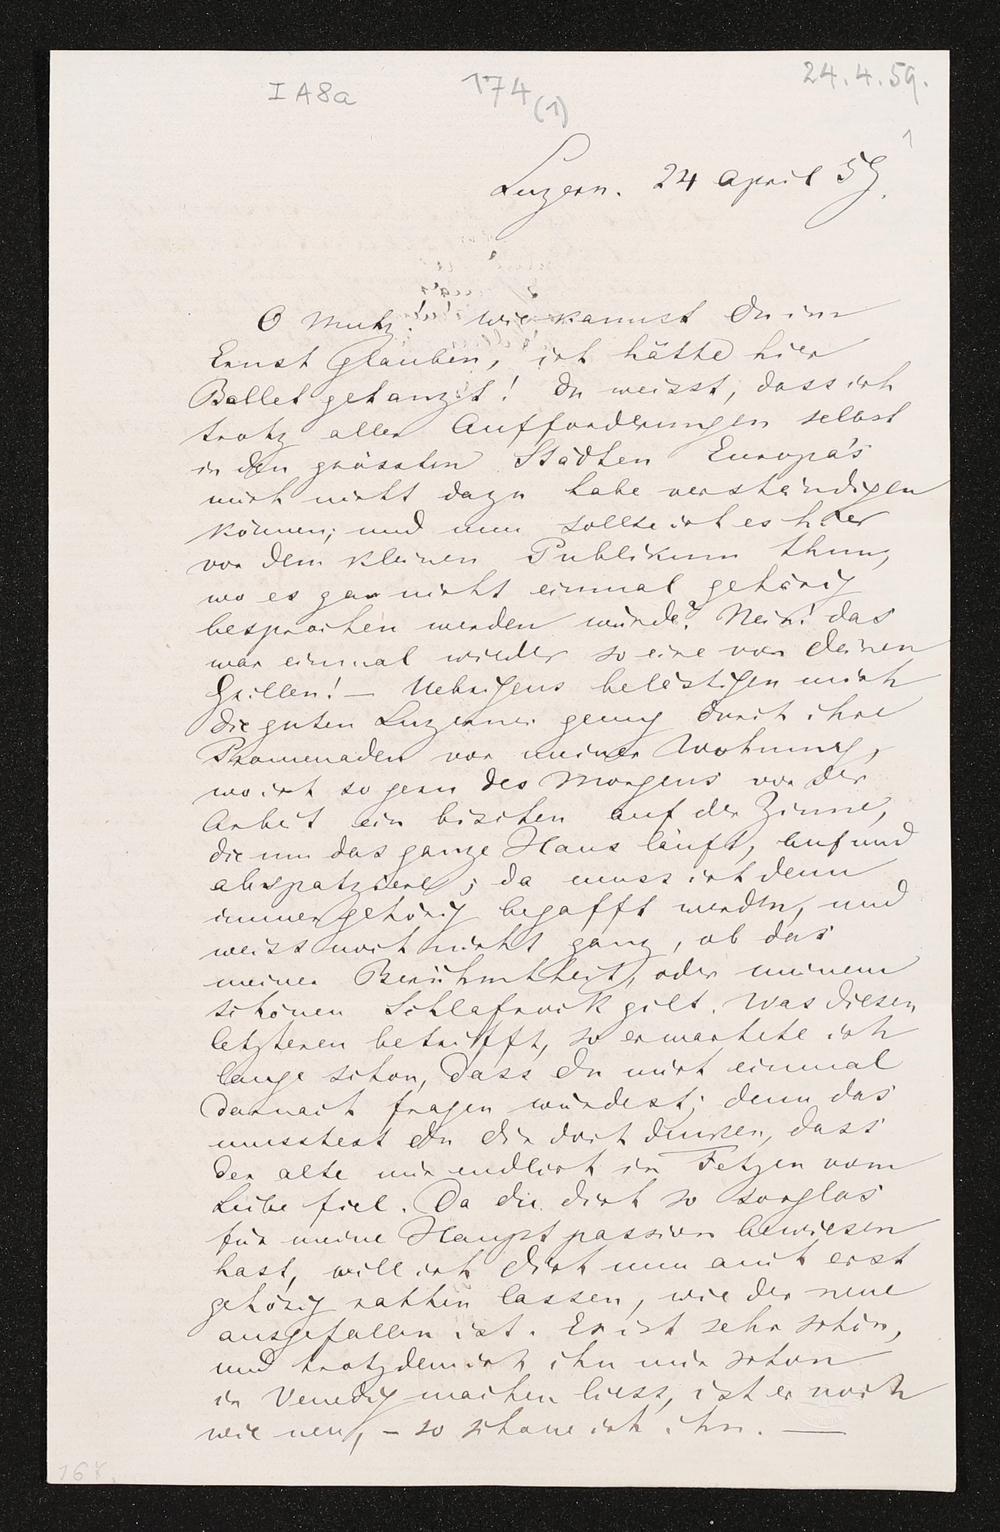 I A 8 a
174
(1)
24.4.59.
1
Luzern. 24 April 59.
O Mutz! Wie kannst Du im
Ernst glauben, ich hätte hier
Ballet getanzt! Du weisst, dass ich
trotz aller Aufforderungen selbst
in den grössten Städten Europa's
mich nicht dazu habe verständigen
können; und nun sollte ich es hier
vor dem kleinen Publikum thun,
wo es gar nicht einmal gehörig
besprochen werden würde? Nein! das
war einmal wieder so eine von Deinen
Grillen! — Uebrigens belästigen mich
die guten Luzerner genug durch ihre
Promenaden vor meiner Wohnung,
wo ich so gern des Morgens vor der
Arbeit ein bischen auf der Zinne,
die um das ganze Haus läuft, auf und
abspatziere; da muss ich denn
immer gehörig begafft werden, und
weiss noch nicht ganz, ob das
meiner Berühmtheit, oder meinem
schönen Schlafrock gilt. Was diesen
letzteren betrifft, so erwartete ich
lange schon, dass Du mich einmal
darnach fragen würdest; denn das
musstest Du Dir doch denken, dass
der alte mir endlich in Fetzen vom
Leibe fiel. Da du dich so sorglos
für meine Hauptpassion bewiesen
hast, will ich Dich nun auch erst
gehörig rathen lassen, wie der neue
ausgefallen ist. Er ist sehr schön,
und trotzdem ich ihn mir schon
in Venedig machen liess, ist er noch
wie neu, – so schone ich ihn. —
167.